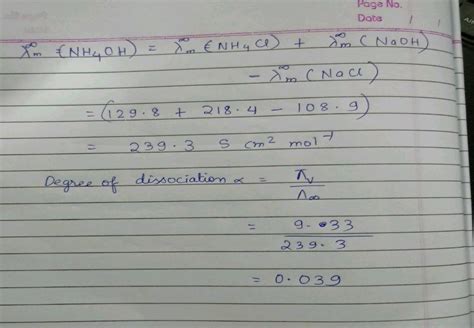 Page No.
Date / /
λ∞m (NH4OH) = λ∞m (NH4Cl) + λ∞m (NaOH)
− λ∞m (NaCl)
= (129.8 + 218.4 − 108.9)
= 239.3 S cm² mol⁻¹
Degree of dissociation α = Λv / Λ∞
= 9.33 / 239.3
= 0.039